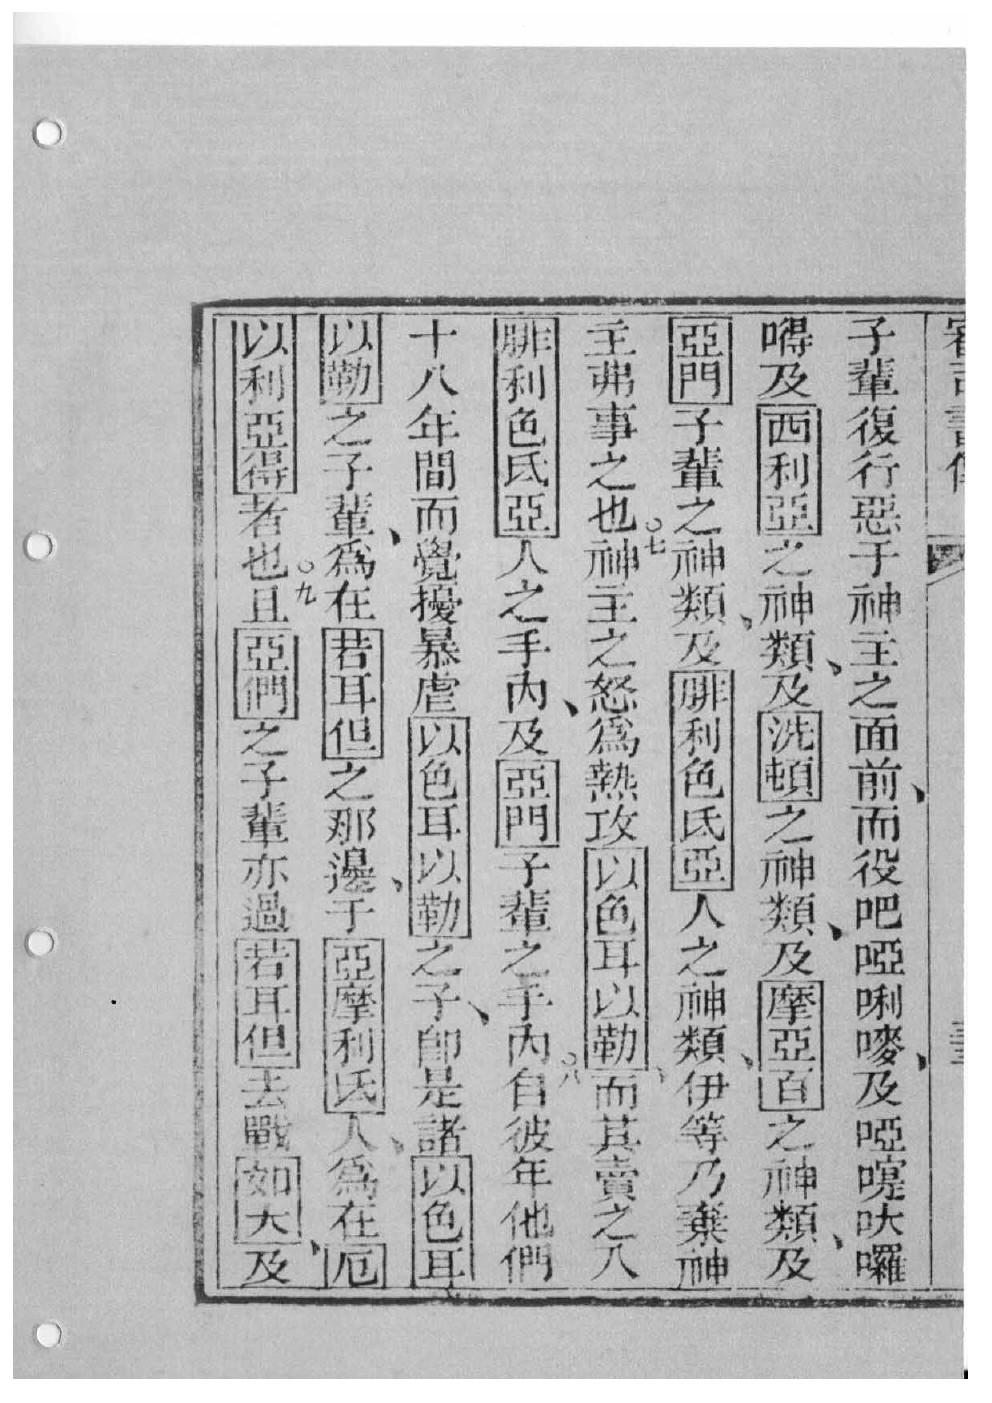 子輩復行惡于神主之面前、而役吧啞唎嘜、及啞𡄖吠囉
嘚及西利亞之神類、及洗頓之神類、及摩亞百之神類、及
亞門子輩之神類、及腓利色氏亞人之神類、伊等乃棄神
主弗事之也。七神主之怒為熱攻以色耳以勒、而其賣之入
腓利色氏亞人之手內、及亞門子輩之手內。八自彼年他們
十八年間而覺擾暴虐以色耳以勒之子、即是諸以色耳
以勒之子輩、為在若耳但之那邊、于亞摩利氏人、為在厄
以利亞得者也。九且亞們之子輩亦過若耳但去戰如大、及